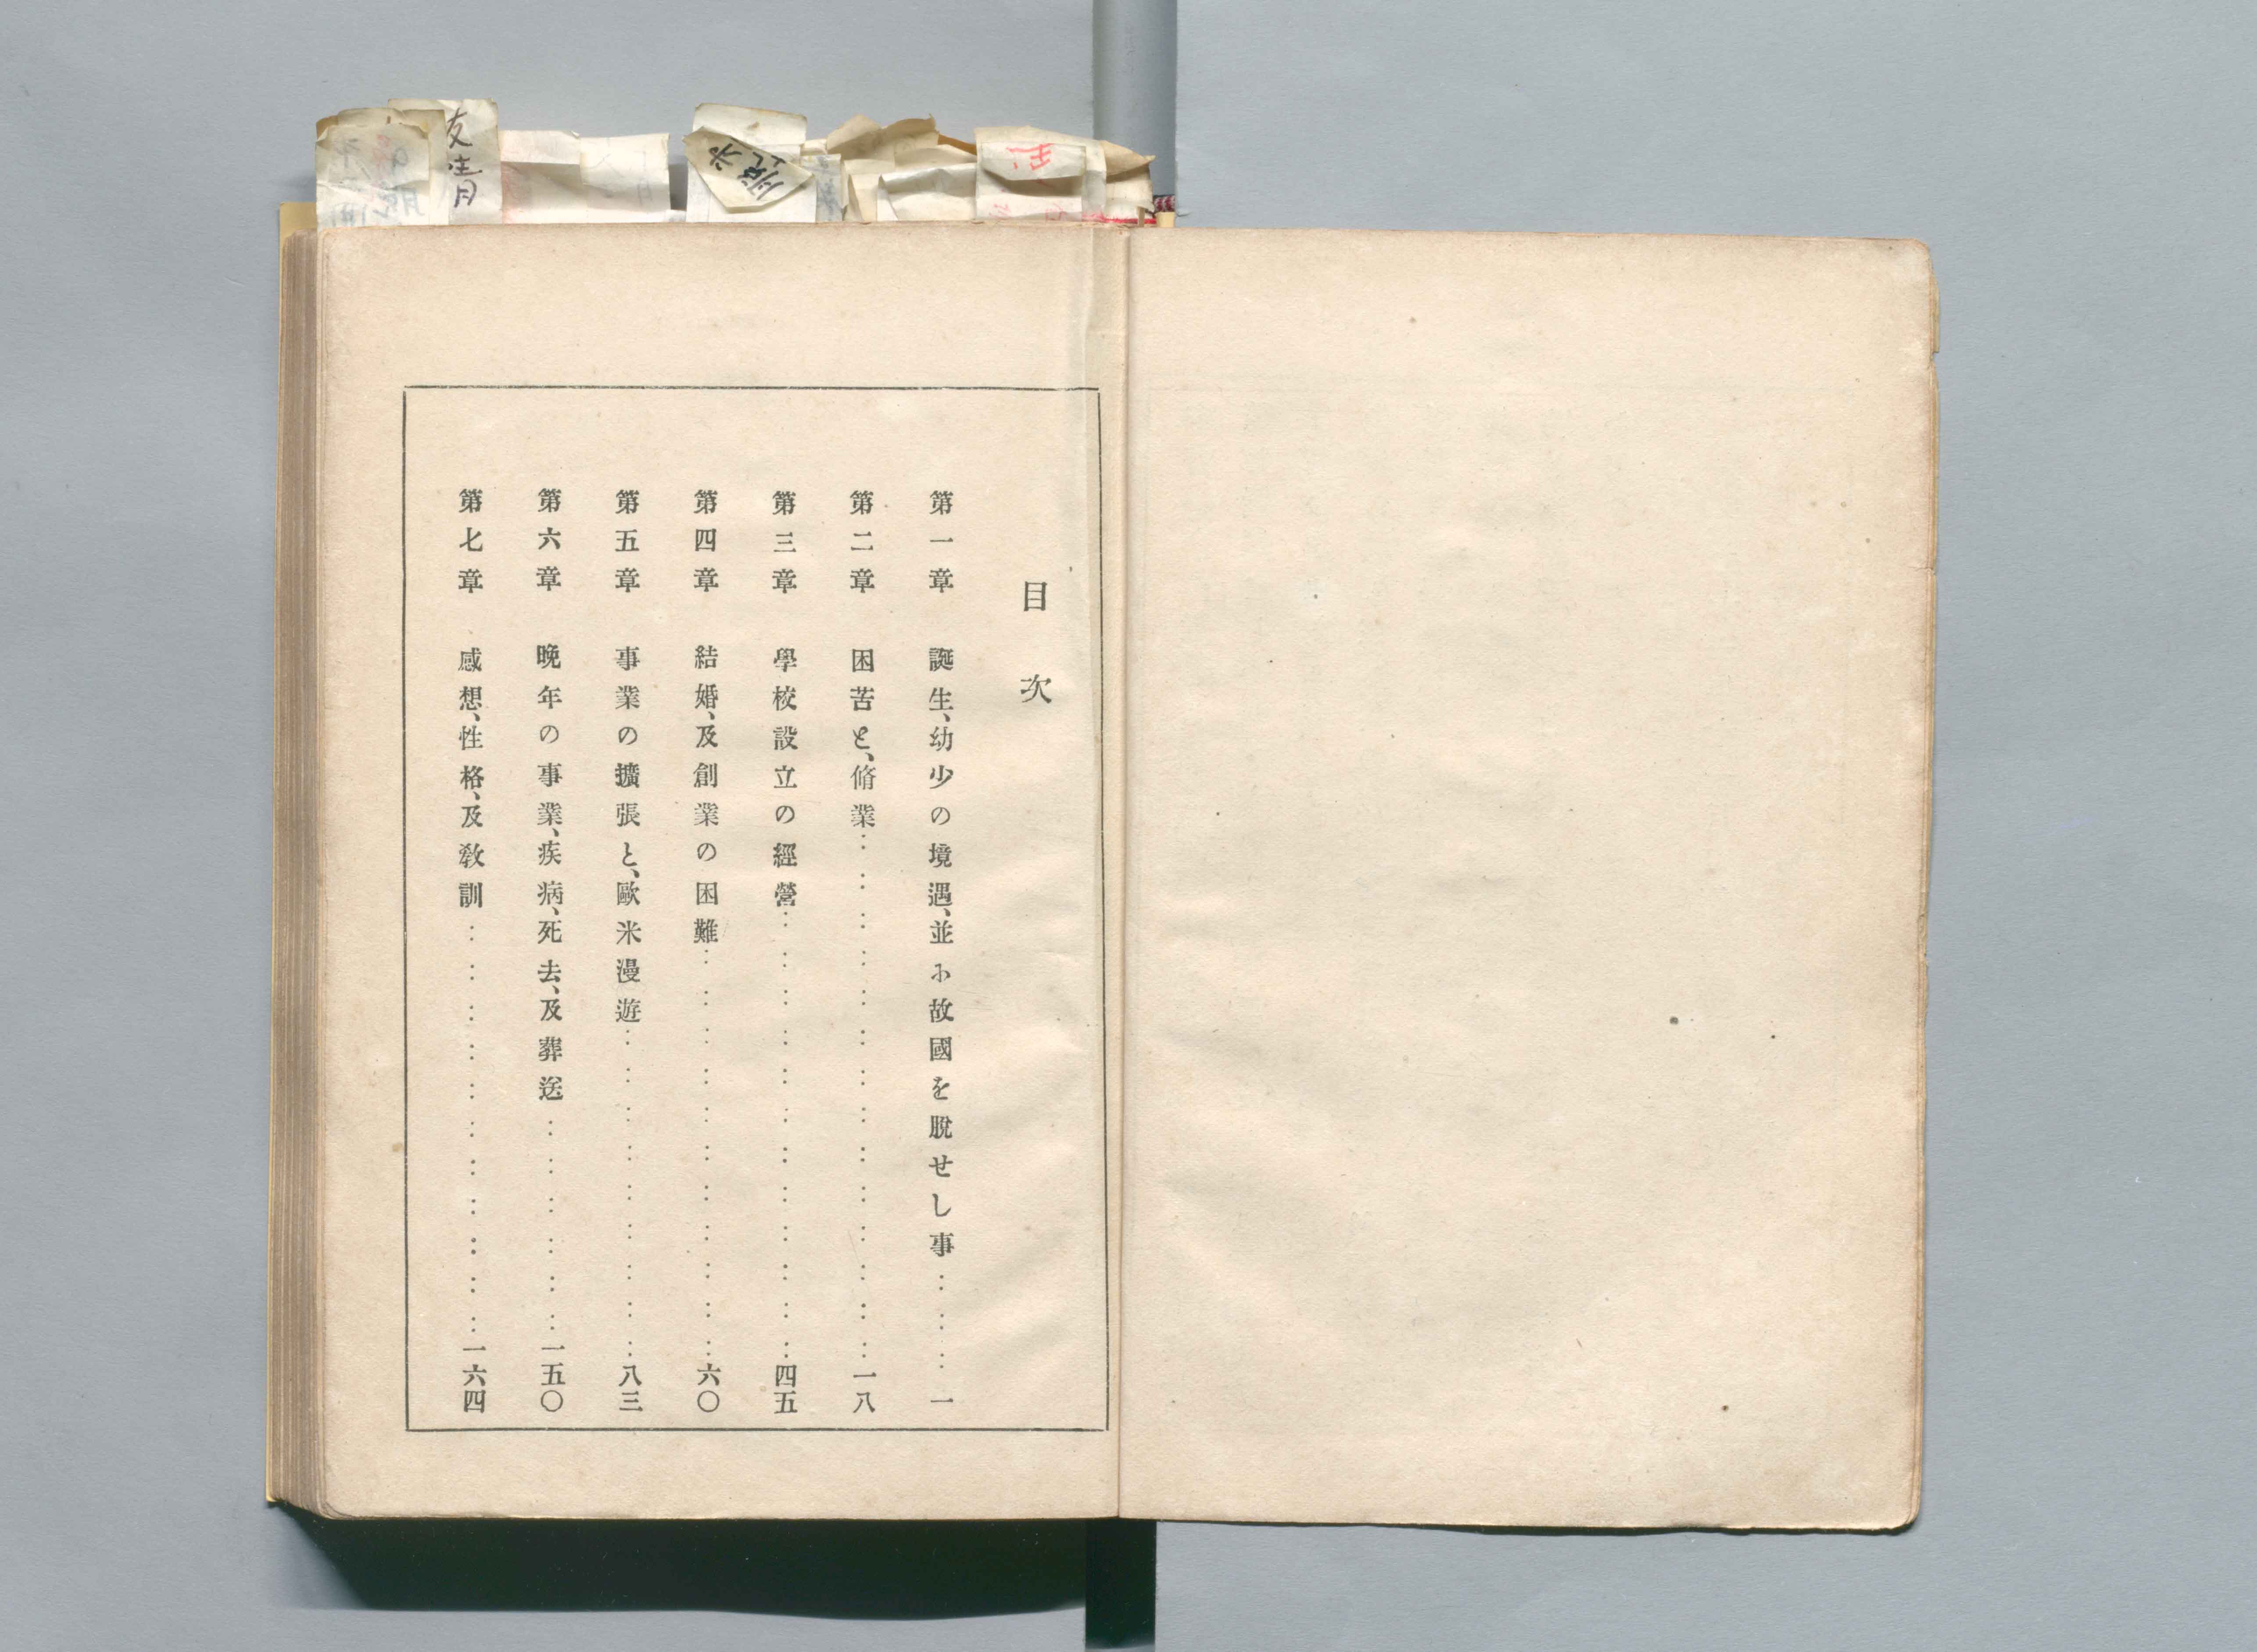 目次
第一章 誕生、幼少の境遇、並に故國を脫せし事……一
第二章 困苦と、脩業……一八
第三章 學校設立の經營……四五
第四章 結婚、及創業の困難……六〇
第五章 事業の擴張と、歐米漫遊……八三
第六章 晩年の事業、疾病、死去、及葬送……一五〇
第七章 感想、性格、及敎訓……一六四